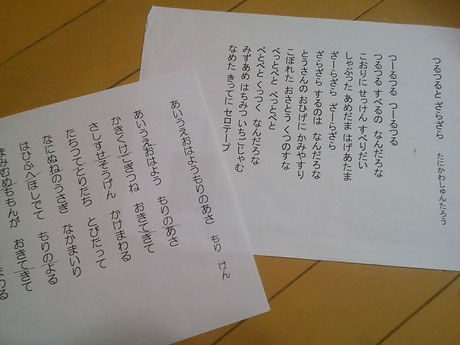 つるつると ざらざら
たにかわしゅんたろう
つーるつる つーるつる
つるつる すべるの なんだろな
こおりに せっけん すべりだい
しゃぶった あめだま はげあたま
ざーらざら ざーらざら
ざらざら するのは なんだろな
とうさんの おひげに かみやすり
こぼれた おさとう くつのすな
べっとべと べっとべと
べとべと くっつく なんだろな
みずあめ はちみつ いちごじゃむ
なめた きってに セロテープ
あいうえおはようもりのあさ
もり けん
あいうえおはよう もりのあさ
かきくけこぎつね おきてきて
さしすせそうげん かけまわる
たちつてとりたち とびたって
なにぬねのうさぎ なかまいり
はひふへほしでて もりのよる
まみむめももんが おきてきて